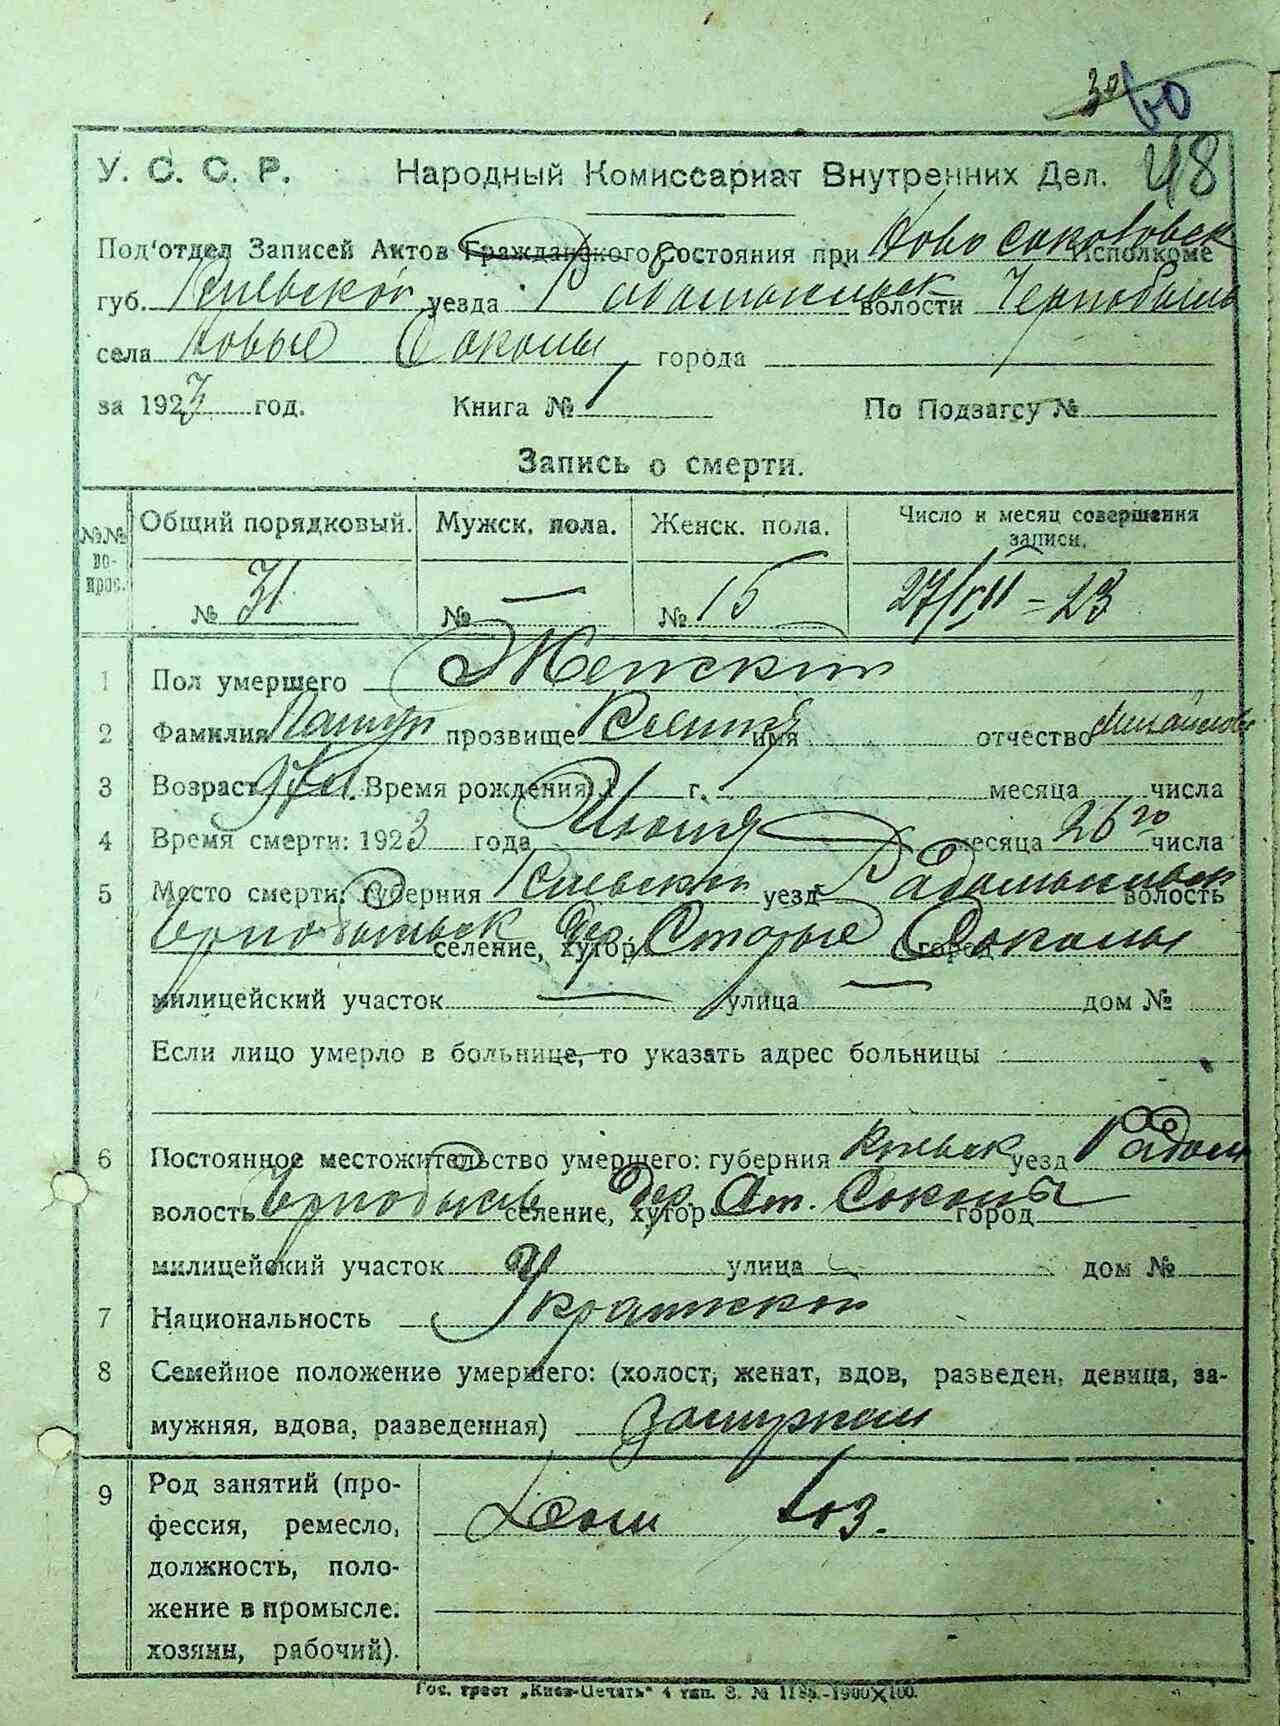 30 60
У. С. С. Р. Народный Комиссариат Внутренних Дел. 48
Под'отдел Записей Актов Гражданского Состояния при Ново Соколовск Исполкоме
губ. Киевской уезда Радомысльск волости Чернобыль
села Новые Соколы города
за 1923 год. Книга № 1 По Подзагсу №
Запись о смерти.
№№ вопрос. Общий порядковый. Мужск. пола. Женск. пола. Число и месяц совершения
записи.
№ 31 № — № 15 27/VII – 23
1 Пол умершего Женский
2 Фамилия прозвище Ксения имя отчество
3 Возраст Время рождения 1 г. месяца числа
4 Время смерти: 1923 года Июня месяца 26го числа
5 Место смерти: губерния Киевской уезд Радомысльск волость
Чернобыльск селение, хутор дер. Старые Соколы город
милицейский участок — улица — дом №
Если лицо умерло в больнице, то указать адрес больницы
6 Постоянное местожительство умершего: губерния Киевск уезд Радом
волость Чернобыль селение, хутор дер. Ст. Соколы город
милицейский участок улица дом №
7 Национальность
8 Семейное положение умершего: (холост, женат, вдов, разведен, девица, за-
мужняя, вдова, разведенная) замужняя
9 Род занятий (про-
фессия, ремесло, Дом хоз.
должность, поло-
жение в промысле.
хозяин, рабочий).
Гос. трест „Киев-Печать“ 4 тип. З. № -1900×100.